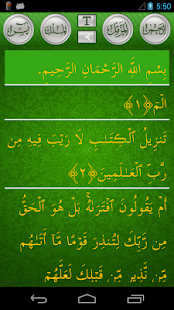 5:50
T
بِسْمِ اللَّهِ الرَّحْمَانِ الرَّحِيمِ.
الٓمٓ ﴿١﴾
تَنزِيلُ ٱلْكِتَـٰبِ لَا رَيْبَ فِيهِ مِن
رَّبِّ ٱلْعَـٰلَمِينَ ﴿٢﴾
أَمْ يَقُولُونَ ٱفْتَرَىٰهُ بَلْ هُوَ ٱلْحَقُّ
مِن رَّبِّكَ لِتُنذِرَ قَوْمًا مَّآ أَتَىٰهُم
مِّن نَّذِيرٍ مِّن قَبْلِكَ لَعَلَّهُمْ